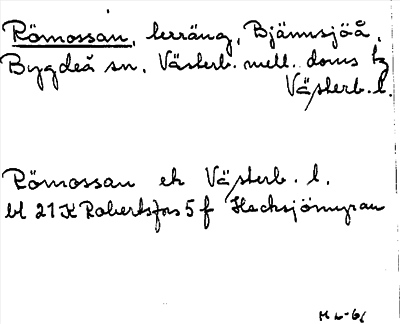 Römossan, terräng, Bjännsjöå,
Bygdeå sn. Västerb. mell. doms tg
Västerb. l.
Römossan ek Västerb. l.
bl 21 K Robertsfors 5 f Hecksjömyran